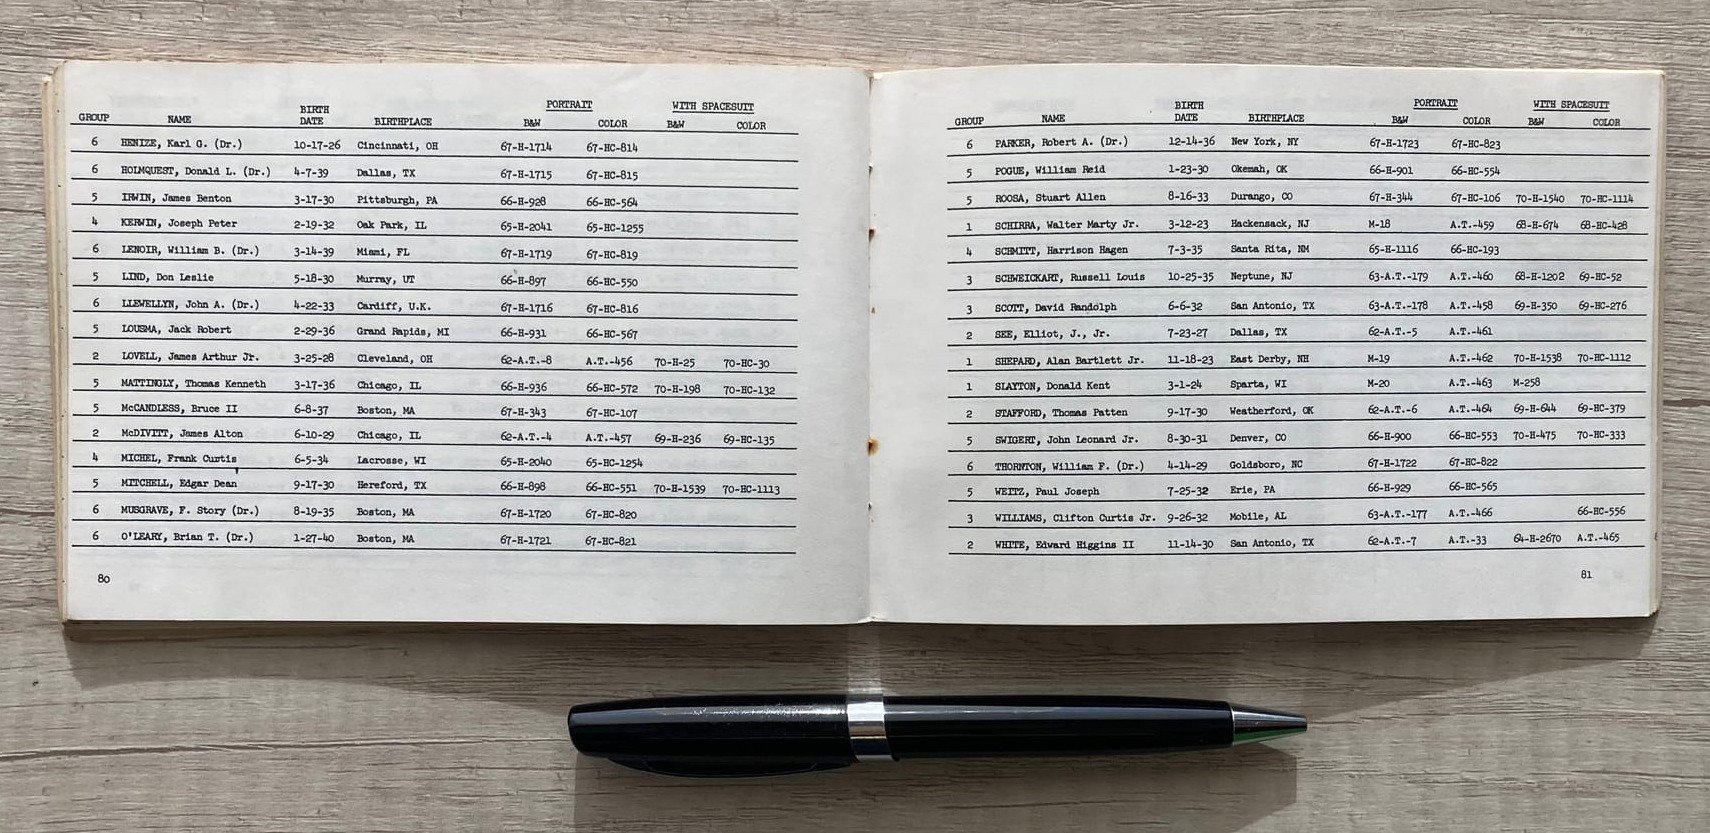 PORTRAIT WITH SPACESUIT
BIRTH
GROUP NAME DATE BIRTHPLACE B&W COLOR B&W COLOR
6 HENIZE, Karl G. (Dr.) 10-17-26 Cincinnati, OH 67-H-1714 67-HC-814
6 HOLMQUEST, Donald L. (Dr.) 4-7-39 Dallas, TX 67-H-1715 67-HC-815
5 IRWIN, James Benton 3-17-30 Pittsburgh, PA 66-H-928 66-HC-564
4 KERWIN, Joseph Peter 2-19-32 Oak Park, IL 65-H-2041 65-HC-1255
6 LENOIR, William B. (Dr.) 3-14-39 Miami, FL 67-H-1719 67-HC-819
5 LIND, Don Leslie 5-18-30 Murray, UT 66-H-897 66-HC-550
6 LLEWELLYN, John A. (Dr.) 4-22-33 Cardiff, U.K. 67-H-1716 67-HC-816
5 LOUSMA, Jack Robert 2-29-36 Grand Rapids, MI 66-H-931 66-HC-567
2 LOVELL, James Arthur Jr. 3-25-28 Cleveland, OH 62-A.T.-8 A.T.-456 70-H-25 70-HC-30
5 MATTINGLY, Thomas Kenneth 3-17-36 Chicago, IL 66-H-936 66-HC-572 70-H-198 70-HC-132
5 McCANDLESS, Bruce II 6-8-37 Boston, MA 67-H-343 67-HC-107
2 McDIVITT, James Alton 6-10-29 Chicago, IL 62-A.T.-4 A.T.-457 69-H-236 69-HC-135
4 MICHEL, Frank Curtis 6-5-34 Lacrosse, WI 65-H-2040 65-HC-1254
5 MITCHELL, Edgar Dean 9-17-30 Hereford, TX 66-H-898 66-HC-551 70-H-1539 70-HC-1113
6 MUSGRAVE, F. Story (Dr.) 8-19-35 Boston, MA 67-H-1720 67-HC-820
6 O'LEARY, Brian T. (Dr.) 1-27-40 Boston, MA 67-H-1721 67-HC-821
80
PORTRAIT WITH SPACESUIT
BIRTH
GROUP NAME DATE BIRTHPLACE B&W COLOR B&W COLOR
6 PARKER, Robert A. (Dr.) 12-14-36 New York, NY 67-H-1723 67-HC-823
5 POGUE, William Reid 1-23-30 Okemah, OK 66-H-901 66-HC-554
5 ROOSA, Stuart Allen 8-16-33 Durango, CO 67-H-344 67-HC-106 70-H-1540 70-HC-1114
1 SCHIRRA, Walter Marty Jr. 3-12-23 Hackensack, NJ M-18 A.T.-459 68-H-674 68-HC-428
4 SCHMITT, Harrison Hagen 7-3-35 Santa Rita, NM 65-H-1116 66-HC-193
3 SCHWEICKART, Russell Louis 10-25-35 Neptune, NJ 63-A.T.-179 A.T.-460 68-H-1202 69-HC-52
3 SCOTT, David Randolph 6-6-32 San Antonio, TX 63-A.T.-178 A.T.-458 69-H-350 69-HC-276
2 SEE, Elliot, J., Jr. 7-23-27 Dallas, TX 62-A.T.-5 A.T.-461
1 SHEPARD, Alan Bartlett Jr. 11-18-23 East Derby, NH M-19 A.T.-462 70-H-1538 70-HC-1112
1 SLAYTON, Donald Kent 3-1-24 Sparta, WI M-20 A.T.-463 M-258
2 STAFFORD, Thomas Patten 9-17-30 Weatherford, OK 62-A.T.-6 A.T.-464 69-H-644 69-HC-379
5 SWIGERT, John Leonard Jr. 8-30-31 Denver, CO 66-H-900 66-HC-553 70-H-475 70-HC-333
6 THORNTON, William F. (Dr.) 4-14-29 Goldsboro, NC 67-H-1722 67-HC-822
5 WEITZ, Paul Joseph 7-25-32 Erie, PA 66-H-929 66-HC-565
3 WILLIAMS, Clifton Curtis Jr. 9-26-32 Mobile, AL 63-A.T.-177 A.T.-466 66-HC-556
2 WHITE, Edward Higgins II 11-14-30 San Antonio, TX 62-A.T.-7 A.T.-33 64-H-2670 A.T.-465
81